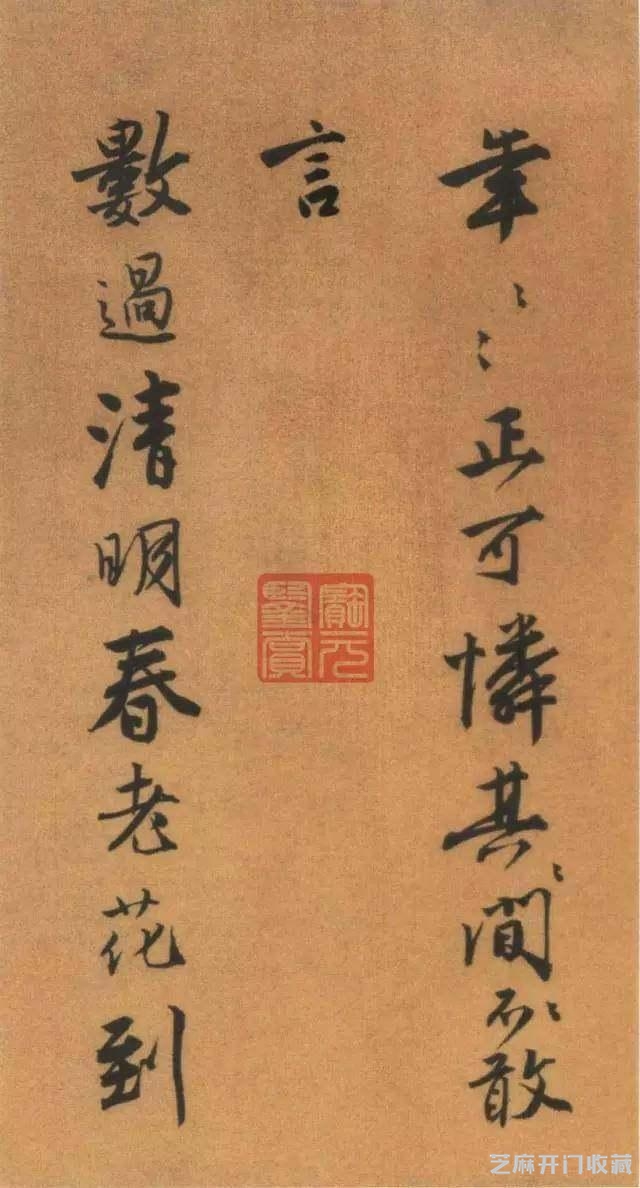 年〻〻正可憐其〻間不〻敢
言
數過清明春老花到
寶元
鑒賞
芝麻开门收藏